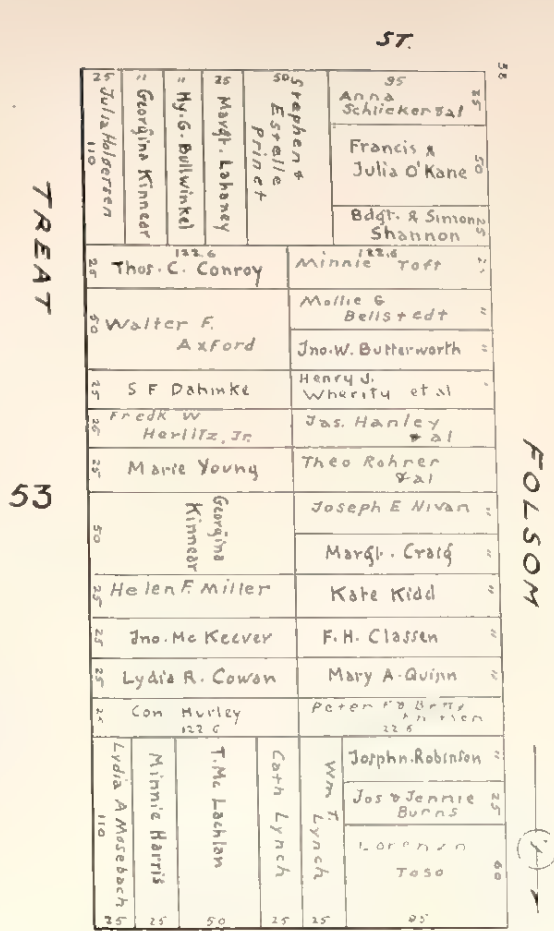 ST.
TREAT
53
FOLSOM
25
Julia Holgersen
110
"
Georgina Kinnear
"
Hy. G. Bullwinkel
25
Margt. Lahaney
50
Stephen &
Estelle
Prinet
95
Anna
Schlicker & al
25
Francis &
Julia O'Kane
50
Bdgt. & Simon
Shannon
25
122.6
25
Thos. C. Conroy
122.6
Minnie Toft
50
Walter F.
Axford
Mollie G
Bellstedt
"
Jno. W. Butterworth
"
25
S F Dahmke
Henry J.
Wherity et al
25
Fredk W
Herlitz, Jr.
Jas. Hanley
& al
25
Marie Young
Theo Rohrer
& al
50
Georgina
Kinnear
Joseph E Nivan
"
Margt. Craig
"
25
Helen F. Miller
Kate Kidd
"
25
Jno. McKeever
F. H. Classen
"
25
Lydia R. Cowan
Mary A. Quinn
"
25
Con Hurley
122 6
Peter
22 6
Lydia A Mosebach
110
25
Minnie Harris
25
T. McLachlan
50
Cath Lynch
25
Wm T.
Lynch
25
Josphn. Robinson
"
Jos & Jennie
Burns
25
Lorenzo
Toso
60
95